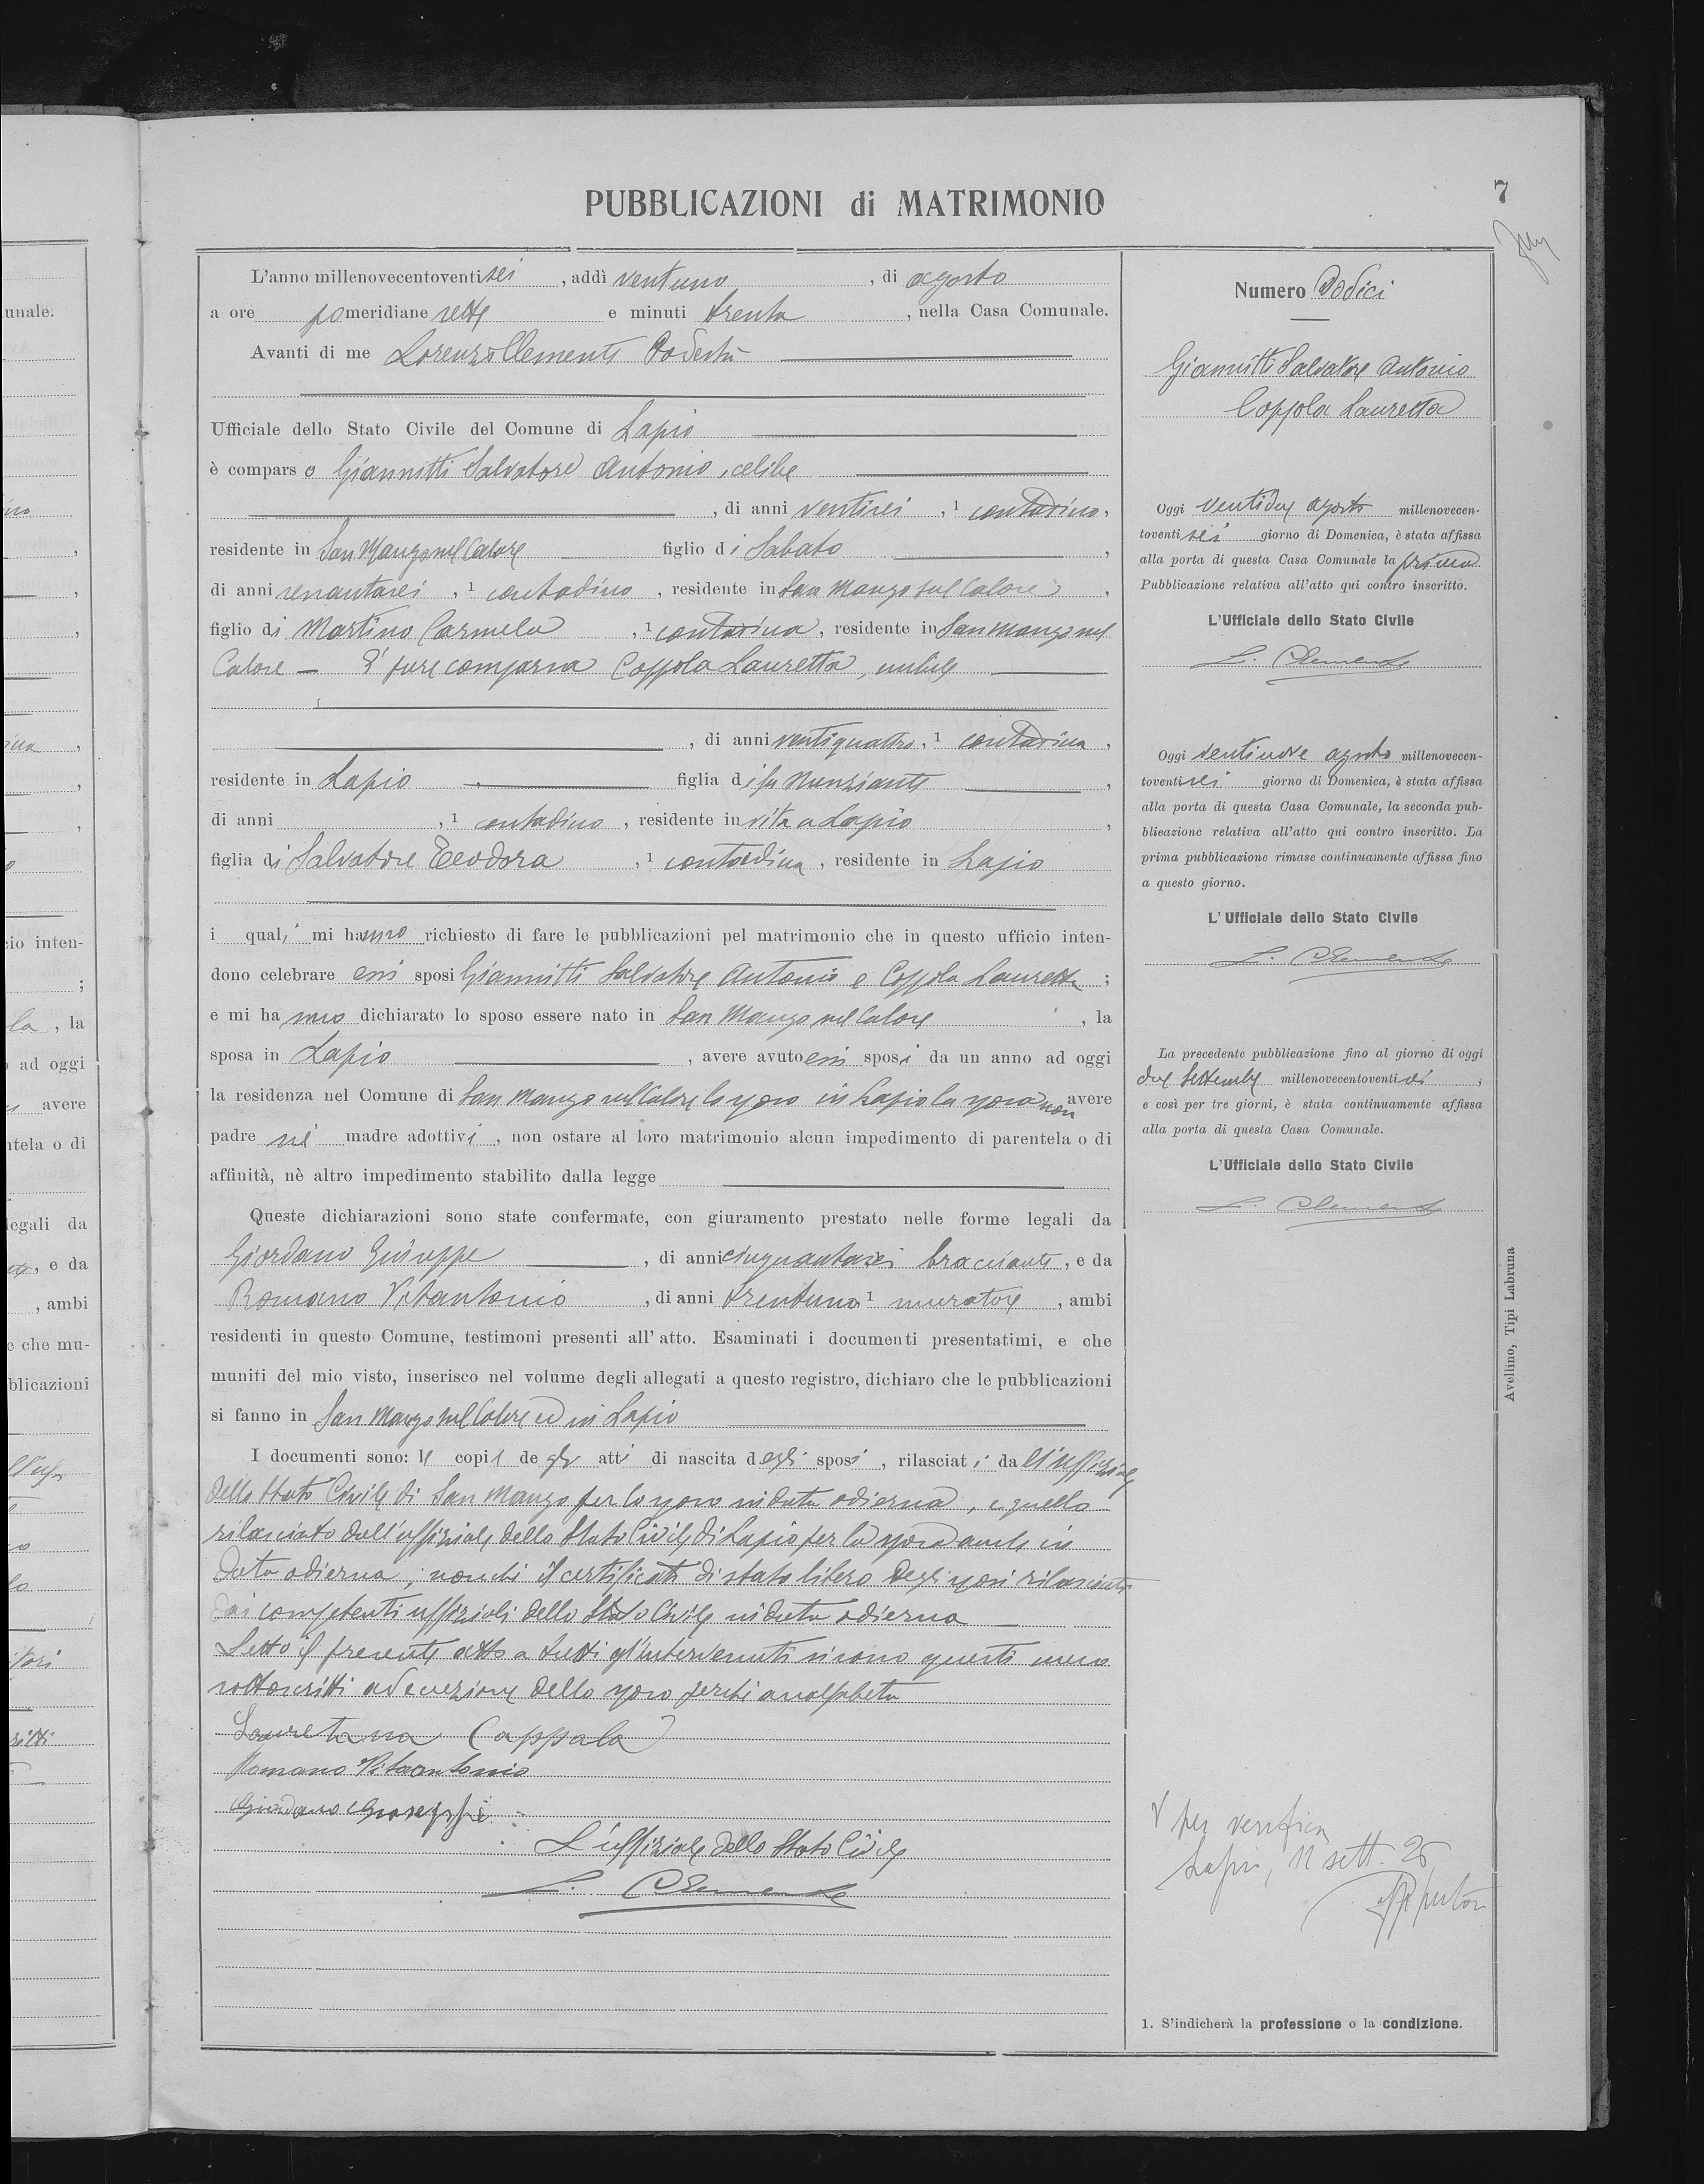 PUBBLICAZIONI di MATRIMONIO
7
L'anno millenovecentoventisei, addì ventuno, di agosto
a ore pomeridiane sette e minuti trenta, nella Casa Comunale.
Avanti di me Lorenzo Clemente Podestà
Ufficiale dello Stato Civile del Comune di Lapio
è comparso Giannitti Salvatore Antonio, celibe
, di anni ventisei, 1 contadino,
residente in San Mango sul Calore figlio di Sabato,
di anni sessantasei, 1 contadino, residente in San Mango sul Calore,
figlio di Martino Carmela, 1 contadina, residente in San Mango sul
Calore – E' pure comparsa Coppola Lauretta, nubile
, di anni ventiquattro, 1 contadina,
residente in Lapio figlia di fu Nunziante,
di anni , 1 contadino, residente in vita a Lapio,
figlia di Salvatore Teodora, 1 contadina, residente in Lapio
i quali mi hanno richiesto di fare le pubblicazioni pel matrimonio che in questo ufficio inten-
dono celebrare essi sposi Giannitti Salvatore Antonio e Coppola Lauretta;
e mi hanno dichiarato lo sposo essere nato in San Mango sul Calore, la
sposa in Lapio, avere avuto essi sposi da un anno ad oggi
la residenza nel Comune di San Mango sul Calore lo sposo in Lapio la sposa non avere
padre nè madre adottivi, non ostare al loro matrimonio alcun impedimento di parentela o di
affinità, nè altro impedimento stabilito dalla legge
Queste dichiarazioni sono state confermate, con giuramento prestato nelle forme legali da
Giordano Giuseppe, di anni cinquantasei bracciante, e da
Romano Vitantonio, di anni trentuno 1 muratore, ambi
residenti in questo Comune, testimoni presenti all'atto. Esaminati i documenti presentatimi, e che
muniti del mio visto, inserisco nel volume degli allegati a questo registro, dichiaro che le pubblicazioni
si fanno in San Mango sul Calore ed in Lapio
I documenti sono: le copie degli atti di nascita degli sposi, rilasciati dall'uffiziale
dello Stato Civile di San Mango per lo sposo in data odierna, e quello
rilasciato dall'uffiziale dello Stato Civile di Lapio per la sposa anche in
data odierna, nonchè il certificato di stato libero degli sposi rilasciati
dai competenti uffiziali dello Stato Civile in data odierna
Letto il presente atto a tutti gl'intervenuti si sono questi meco
sottoscritti ad eccezione dello sposo perchè analfabeta
Lauretana Cappola
Romano Vitantonio
Giordano Giuseppe
L'uffiziale dello Stato Civile
L. Clemente
Numero Dodici
Giannitti Salvatore Antonio
Coppola Lauretta
Oggi ventidue agosto millenovecen-
toventisei giorno di Domenica, è stata affissa
alla porta di questa Casa Comunale la prima
Pubblicazione relativa all'atto qui contro inscritto.
L'Ufficiale dello Stato Civile
L. Clemente
Oggi ventinove agosto millenovecen-
toventisei giorno di Domenica, è stata affissa
alla porta di questa Casa Comunale, la seconda pub-
blicazione relativa all'atto qui contro inscritto. La
prima pubblicazione rimase continuamente affissa fino
a questo giorno.
L'Ufficiale dello Stato Civile
L. Clemente
La precedente pubblicazione fino al giorno di oggi
due Settembre millenovecentoventisei,
e così per tre giorni, è stata continuamente affissa
alla porta di questa Casa Comunale.
L'Ufficiale dello Stato Civile
L. Clemente
Avellino, Tipi Labruna
V per verifica
Lapio, 11 sett. 26
1. S'indicherà la professione o la condizione.
unale.
cio inten-
;
la, la
ad oggi
avere
ntela o di
legali da
, e da
, ambi
e che mu-
blicazioni